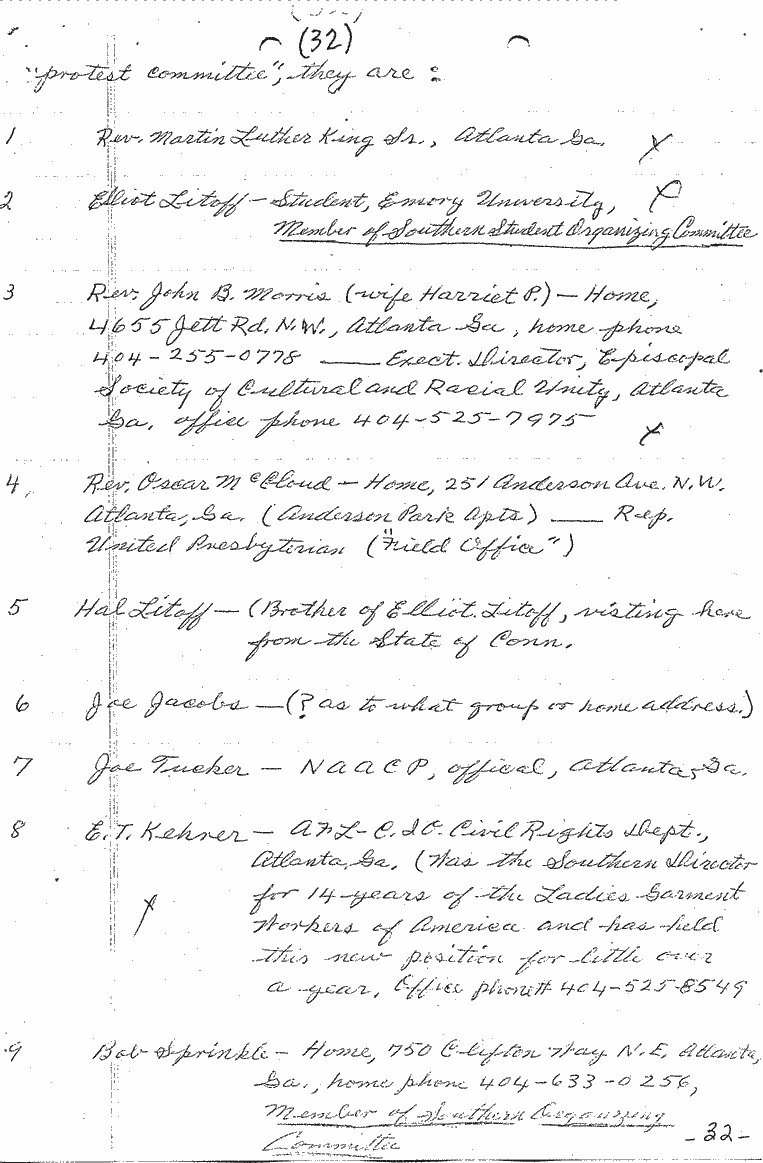 (32)
"protest committee", they are :
1 Rev. Martin Luther King Sr., Atlanta Ga. X
2 Elliot Litoff - Student, Emory University, X
Member of Southern Student Organizing Committee
3 Rev. John B. Morris (wife Harriet P.) - Home,
4655 Jett Rd. N.W., Atlanta Ga, home phone
404-255-0778 ___ Exect. Director, Episcopal
Society of Cultural and Racial Unity, Atlanta
Ga. office phone 404-525-7975 X
4. Rev. Oscar McCloud - Home, 251 Anderson Ave. N.W.
Atlanta, Ga. (Anderson Park Apts) ___ Rep.
United Presbyterian ("Field Office")
5 Hal Litoff - (Brother of Elliot Litoff, visting here
from the State of Conn.
6 Joe Jacobs - (? as to what group or home address.)
7 Joe Tucker - NAACP, offical, Atlanta, Ga.
8 E.T. Kehrer - AFL-C.I.O. Civil Rights Dept.,
Atlanta, Ga. (Was the Southern Director
for 14-years of the Ladies Garment
X Workers of America and has held
this new position for little over
a year, Office phone# 404-525-8549
9 Bob Sprinkle - Home, 750 Clifton Way N.E. Atlanta,
Ga., home phone 404-633-0256,
Member of Southern Organizing
Committee
-32-